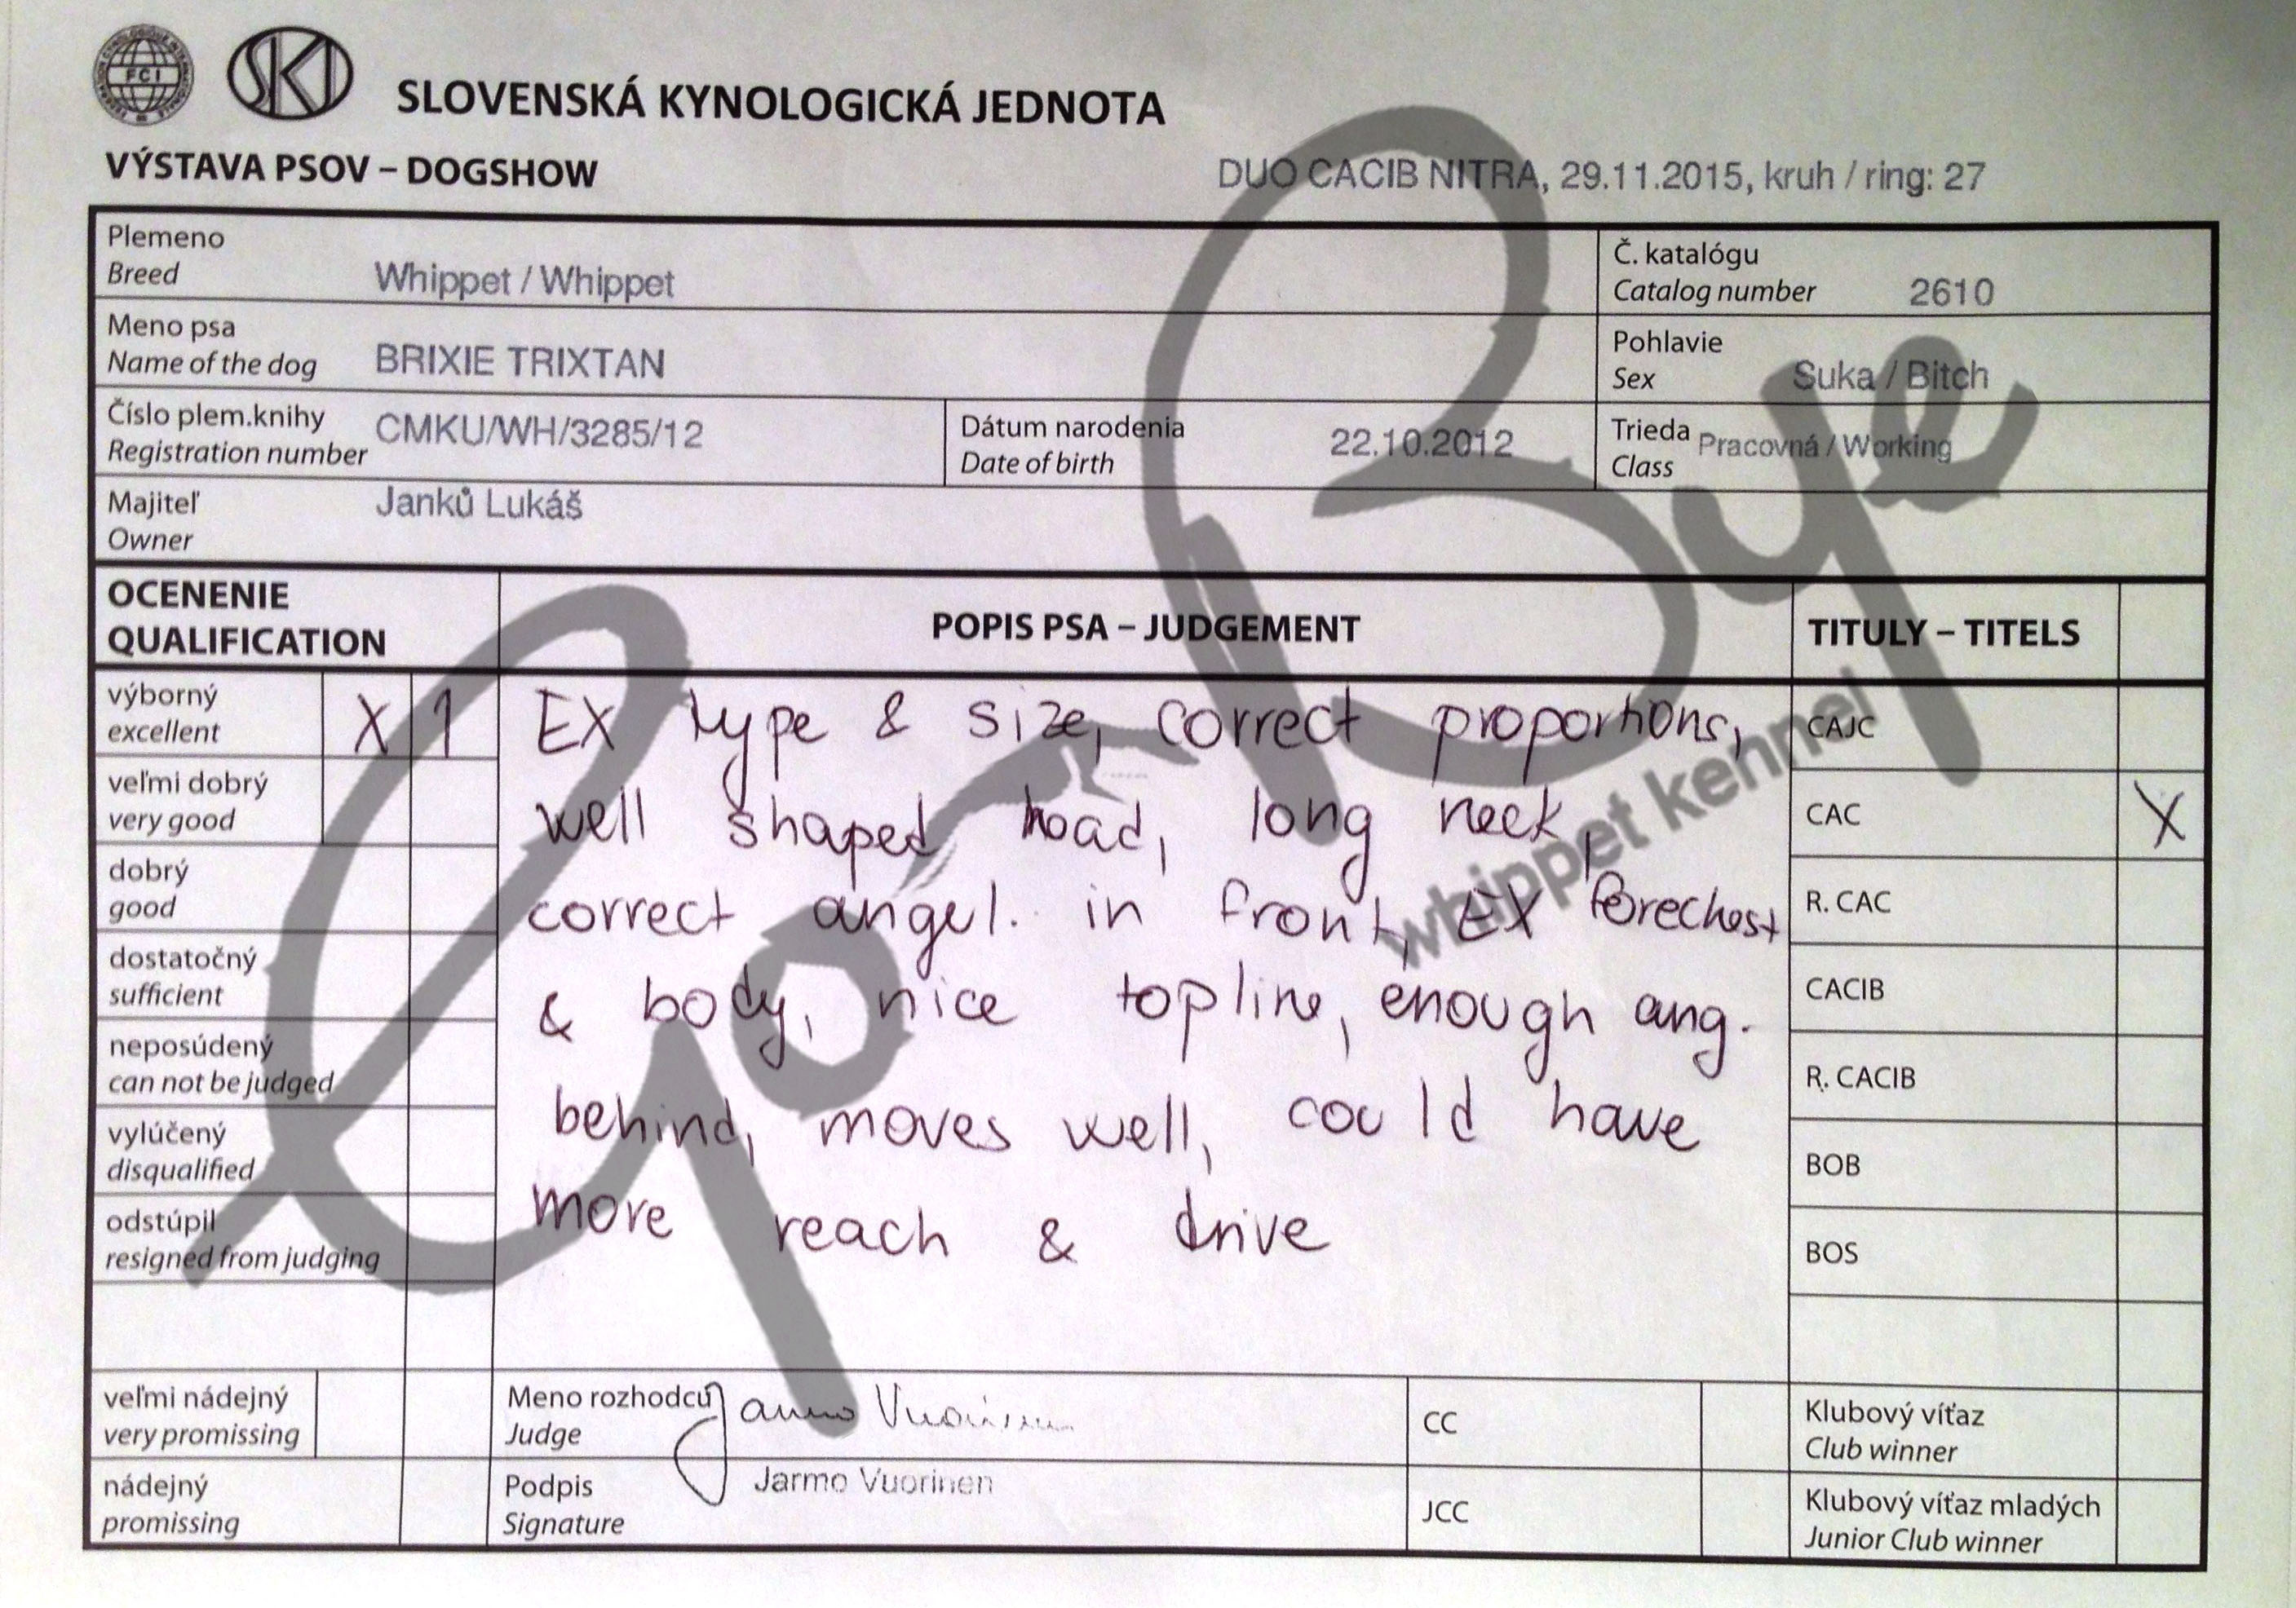 FCI
SKJ
SLOVENSKÁ KYNOLOGICKÁ JEDNOTA
VÝSTAVA PSOV – DOGSHOW
DUO CACIB NITRA, 29.11.2015, kruh / ring: 27
Plemeno
Breed
Whippet / Whippet
Č. katalógu
Catalog number
2610
Meno psa
Name of the dog
BRIXIE TRIXTAN
Pohlavie
Sex
Suka / Bitch
Číslo plem.knihy
Registration number
CMKU/WH/3285/12
Dátum narodenia
Date of birth
22.10.2012
Trieda
Class
Pracovná / Working
Majiteľ
Owner
Janků Lukáš
OCENENIE
QUALIFICATION
POPIS PSA – JUDGEMENT
TITULY – TITELS
výborný
excellent
X 1
veľmi dobrý
very good
dobrý
good
dostatočný
sufficient
neposúdený
can not be judged
vylúčený
disqualified
odstúpil
resigned from judging
EX type & size, correct proportions,
well shaped head, long neck,
correct angul. in front, EX forechest
& body, nice topline, enough ang.
behind, moves well, could have
more reach & drive
CAJC
CAC X
R. CAC
CACIB
R. CACIB
BOB
BOS
veľmi nádejný
very promissing
nádejný
promissing
Meno rozhodcu
Judge
Jarmo Vuorinen
Podpis
Signature
Jarmo Vuorinen
CC
JCC
Klubový víťaz
Club winner
Klubový víťaz mladých
Junior Club winner
Go Bye
whippet kennel